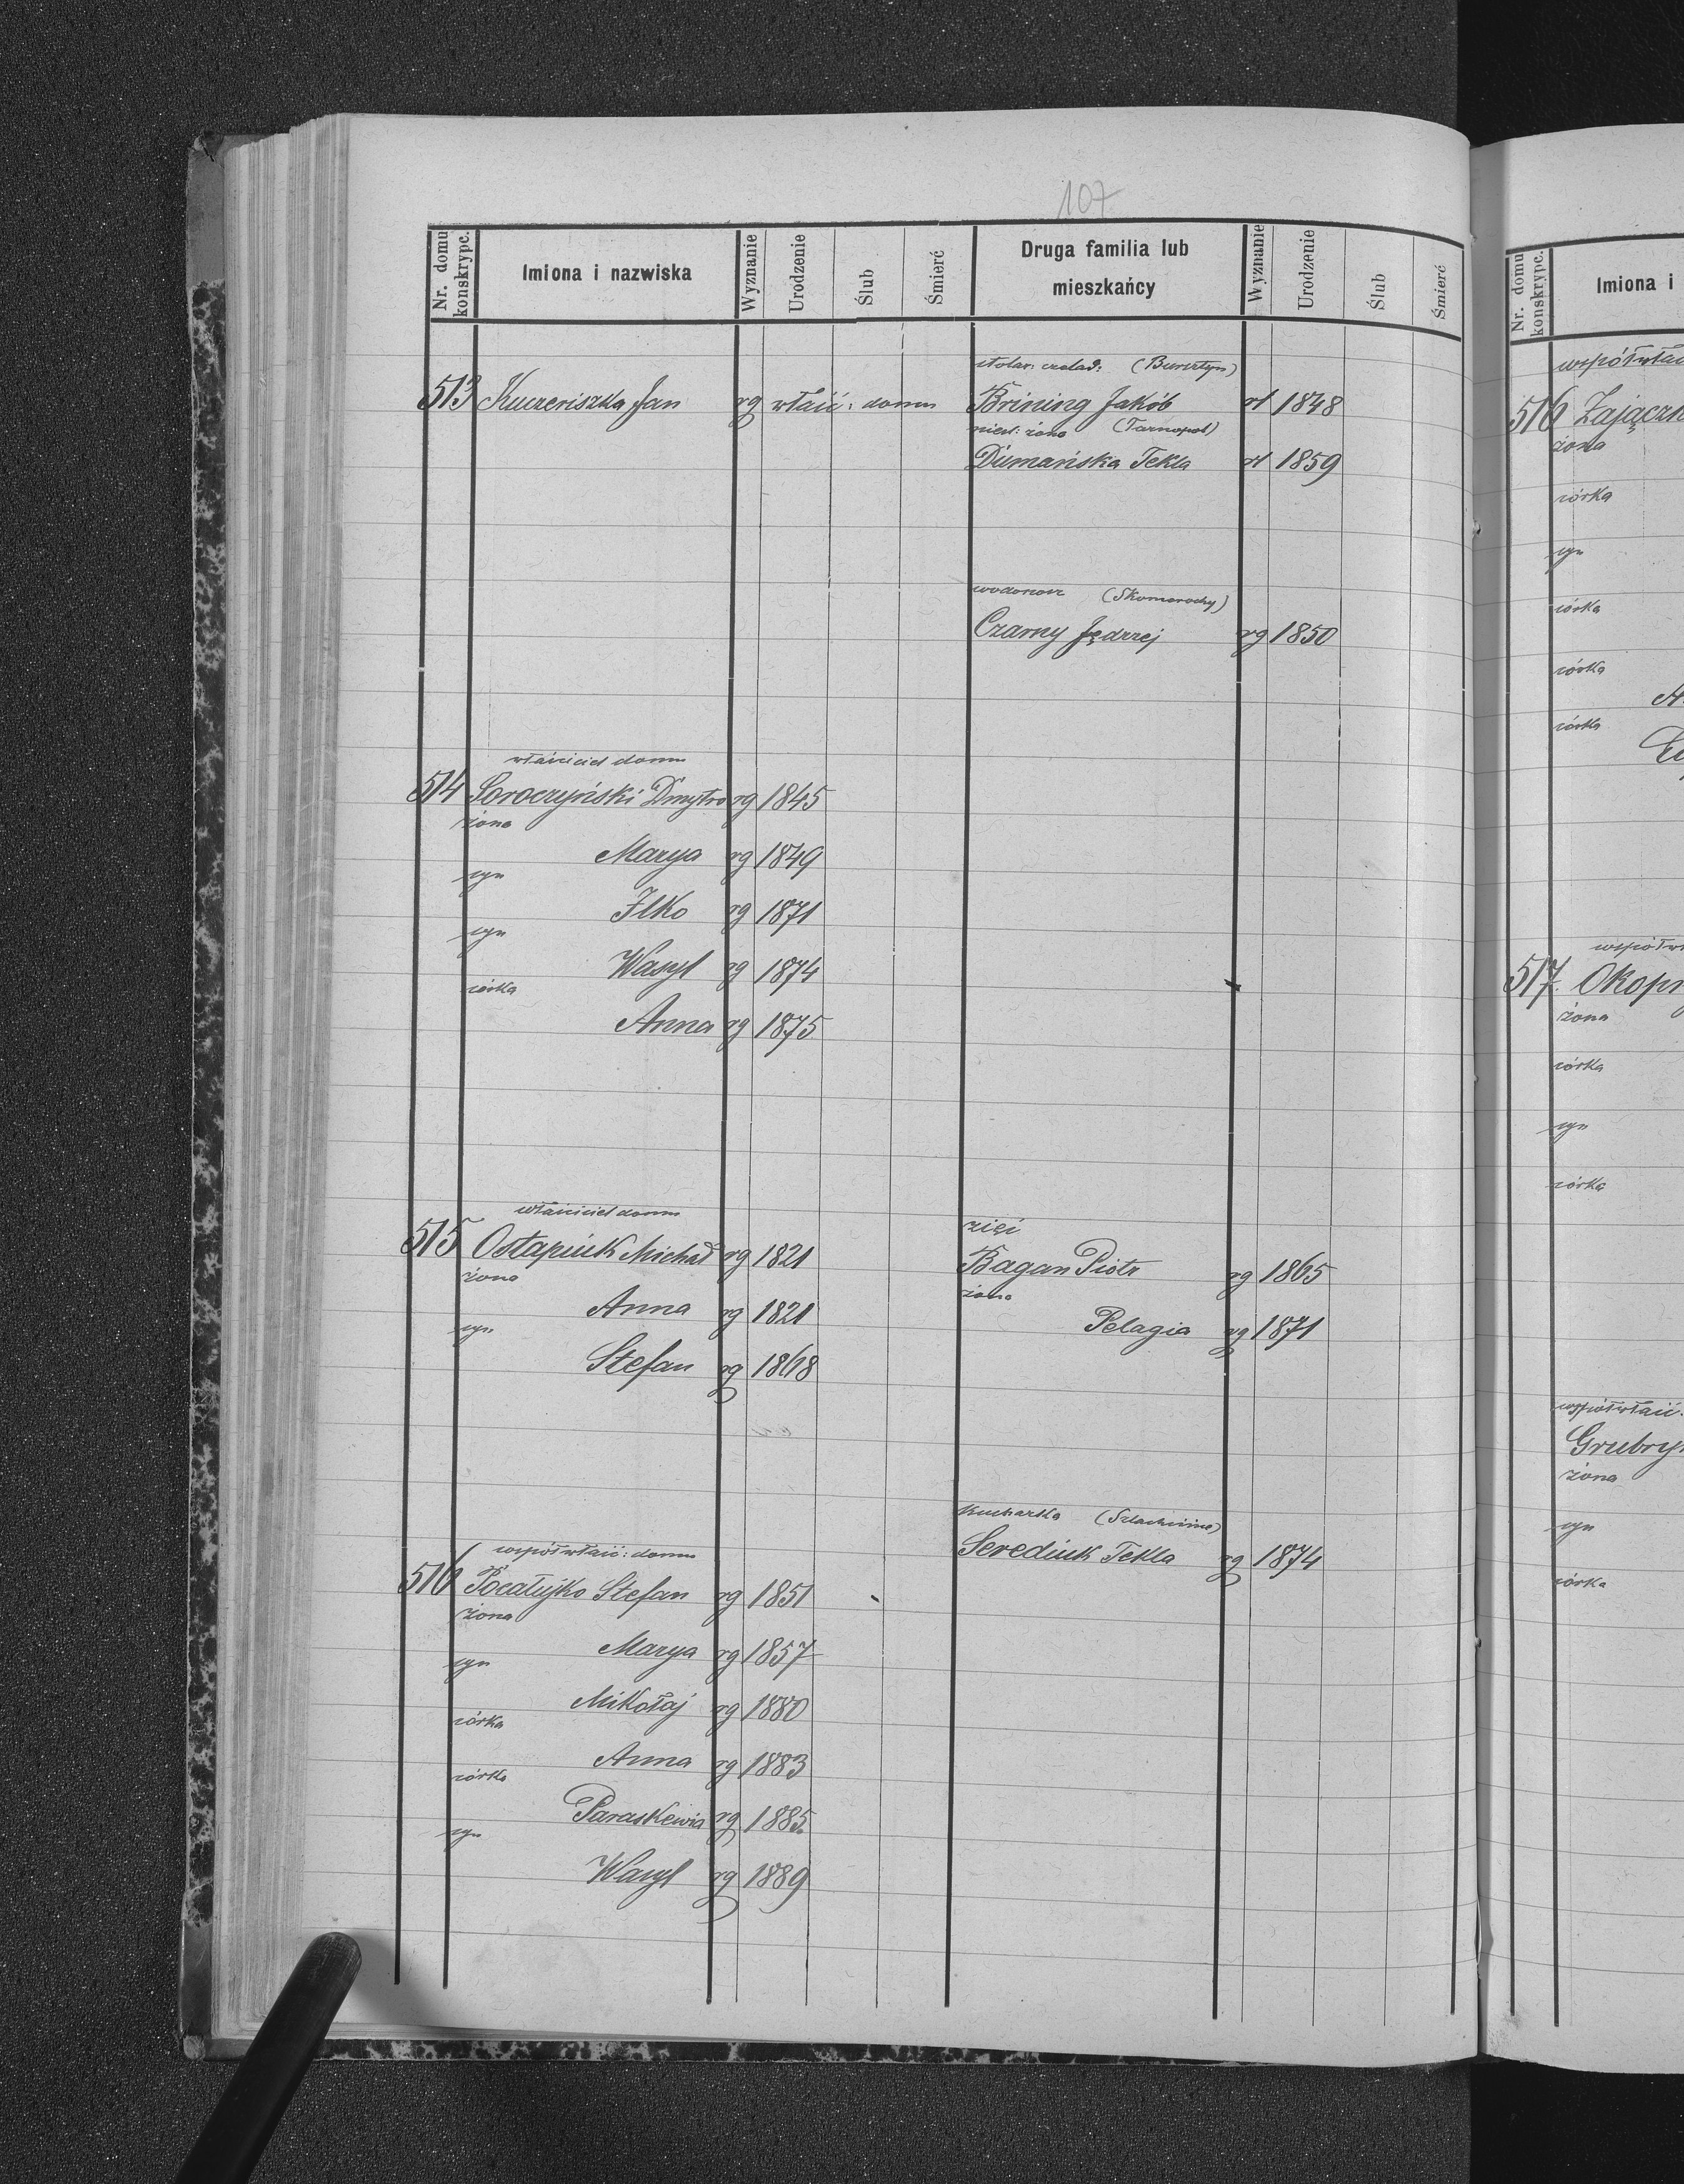 107
Nr. domu konskrypc.
Imiona i nazwiska
Wyznanie
Urodzenie
Ślub
Śmierć
Druga familia lub
mieszkańcy
Wyznanie
Urodzenie
Ślub
Śmierć
stolar: czelad: (Bursztyn)
513 Kuczeriszka Jan rg właść: domu Brining Jakób rł 1848
żona (Tarnopol)
Dumańska Tekla rł 1859
wodonosz (Skomorochy)
Czarny Jędrzej rg 1850
właściciel domu
514 Soroczyński Dmytro rg 1845
żona
Marya rg 1849
syn
Ilko rg 1871
syn
Wasyl rg 1874
córka
Anna rg 1875
właściciel domu
515 Ostapiuk Michał rg 1821
żona
Anna rg 1821
syn
Stefan rg 1868
zięć
Bagan Piotr rg 1865
żona
Pelagia rg 1871
kucharka (Szlachcińce)
Serediuk Tekla rg 1874
współwłaść: domu
516 Pocałujko Stefan rg 1851
żona
Marya rg 1857
syn
Mikołaj rg 1880
córka
Anna rg 1883
córka
Paraskewia rg 1885.
syn
Wasyl rg 1889
Nr. domu konskrypc.
Imiona i
współwłaś
516 Zajączk
żona
córka
syn
córka
córka
A
córka
współw
517. Okopn
żona
córka
syn
córka
współwłaść.
Grubry
żona
syn
córka